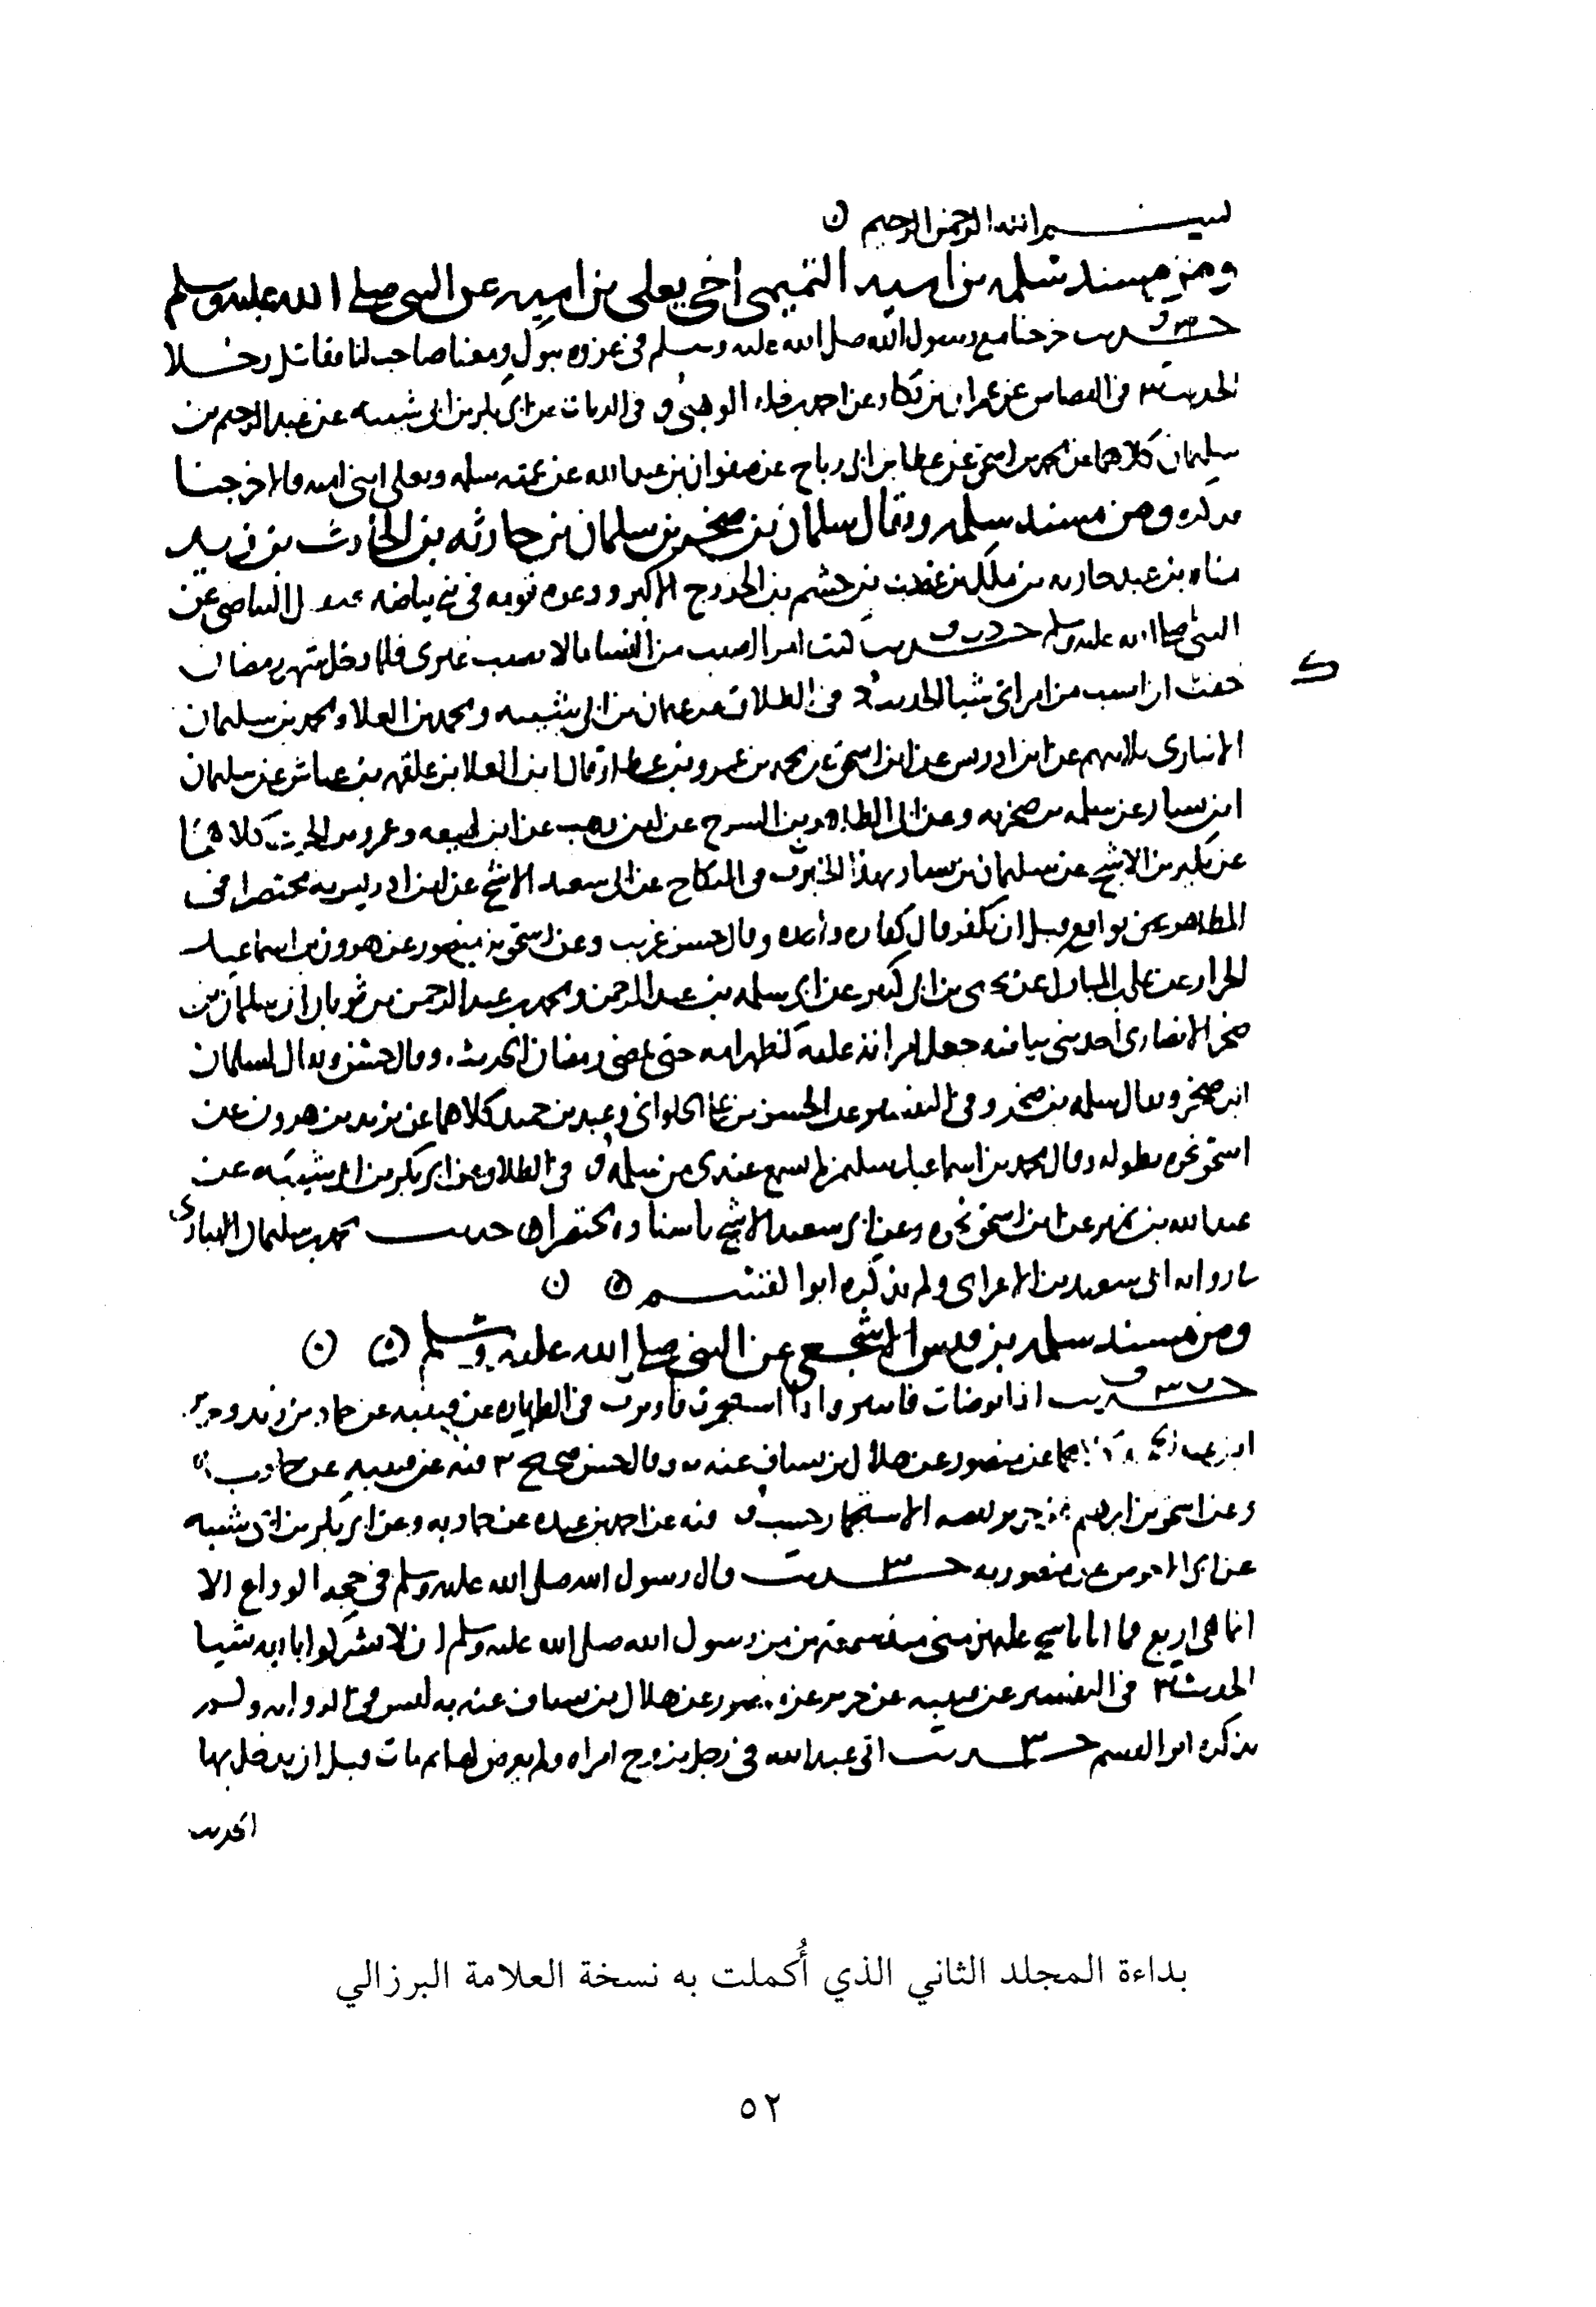 بسم الله الرحمن الرحيم
ومن مسند سلمه بن اميه التميمى اخى يعلى بن اميه عن النبى صلى الله عليه وسلم
حديث خرجنا مع رسول الله صلى الله عليه وسلم فى غزوه تبوك ومعنا صاحب لنا فقاتل رجلا
الحديث فى القصاص عن عمران بن بكار عن احمد بن خالد الوهبى ق فى الديات عن ابى بكر بن ابى شيبه عن عبد الرحيم بن
سليمان كلاهما عن محمد بن اسحق عن عطا بن ابى رباح عن صفوان بن عبد الله عن عمته سلمه ويعلى ابنى اميه قالا خرجنا
فذكره ومن مسند سلمه ويقال سلمان بن صخر بن سلمان بن حارثه بن الحارث بن زيد
مناه بن عبد حارثه بن ملك بن غضب بن جشم بن الخزرج الاكبر ودعوه قومه فى بنى بياضه فيقال البياضى عن
النبى صلى الله عليه وسلم حديث كنت امرا اصيب من النسا مالا يصيب غيرى فلما دخل شهر رمضان
خفت ان اصيب من امراتى شيا الحديث د فى الطلاق عن عثمان بن ابى شيبه ومحمد بن العلا ومحمد بن سليمان
الانبارى ثلاثتهم عن ابن ادريس عن ابن اسحق عن محمد بن عمرو بن عطا وقال ابن العلا بن علقمه بن عياش عن سليمان
ابن يسار عن سلمه بن صخر به وعن ابى الطاهر بن السرح عن ابن وهب عن ابن لهيعه وعمرو بن الحرث كلاهما
عن بكير بن الاشج عن سليمان بن يسار بهذا الخبر ت فى النكاح عن ابى سعيد الاشج عن ابن ادريس به مختصرا فى
المظاهر يواقع قبل ان يكفر قال كفاره واحده وقال حسن غريب وعن اسحق بن منصور عن هرون بن اسماعيل
الخزاز عن على بن المبارك عن يحيى بن ابى كثير عن ابى سلمه بن عبد الرحمن ومحمد بن عبد الرحمن بن ثوبان ان سلمان بن
صخر الانصارى احد بنى بياضه جعل امراته عليه كظهر امه حتى يمضى رمضان الحديث وقال حسن ويقال لسلمان
ابن صخر ويقال سلمه بن صخر وفى التفسير عن الحسن بن على الحلوانى وعبد بن حميد كلاهما عن يزيد بن هرون عن
اسحق نحوه بطوله وقال محمد بن اسماعيل سليمان لم يسمع عندى من سلمه ق فى الطلاق عن ابى بكر بن ابى شيبه عن
عبد الله بن نمير عن ابن اسحق نحوه وعن ابى سعيد الاشج باسناده مختصرا حديث محمد بن سليمان الانبارى
فى روايه ابى سعيد بن الاعرابى ولم يذكره ابوا لقسم
ومن مسند سلمه بن قيس الاشجعى عن النبى صلى الله عليه وسلم
حديث اذا توضات فانتثر واذا استجمرت فاوتر ت فى الطهاره عن قتيبه عن حماد بن زيد وجرير
ابن عبد الحميد كلاهما عن منصور عن هلال بن يساف عنه به وقال حسن صحيح س فيه عن قتيبه عن حماد به
وعن اسحق بن ابرهيم عن جرير بقصه الاستجمار حسب ق فيه عن احمد بن عبده عن حماد به وعن ابى بكر بن ابى شيبه
عن ابى الاحوص عن منصور به حديث قال رسول الله صلى الله عليه وسلم فى حجه الوداع الا
انما هى اربع فما انا باشح عليهن منى منذ سمعتهن من رسول الله صلى الله عليه وسلم ان لا تشركوا بالله شيا
الحديث س فى التفسير عن قتيبه عن جرير عن منصور عن هلال بن يساف عنه به ليس فى الروايه ولم
يذكره ابو القسم حديث اتى عبد الله فى رجل تزوج امراه ولم يفرض لها ثم مات قبل ان يدخل بها
الحديث
بداءة المجلد الثاني الذي أُكملت به نسخة العلامة البرزالي
٥٢